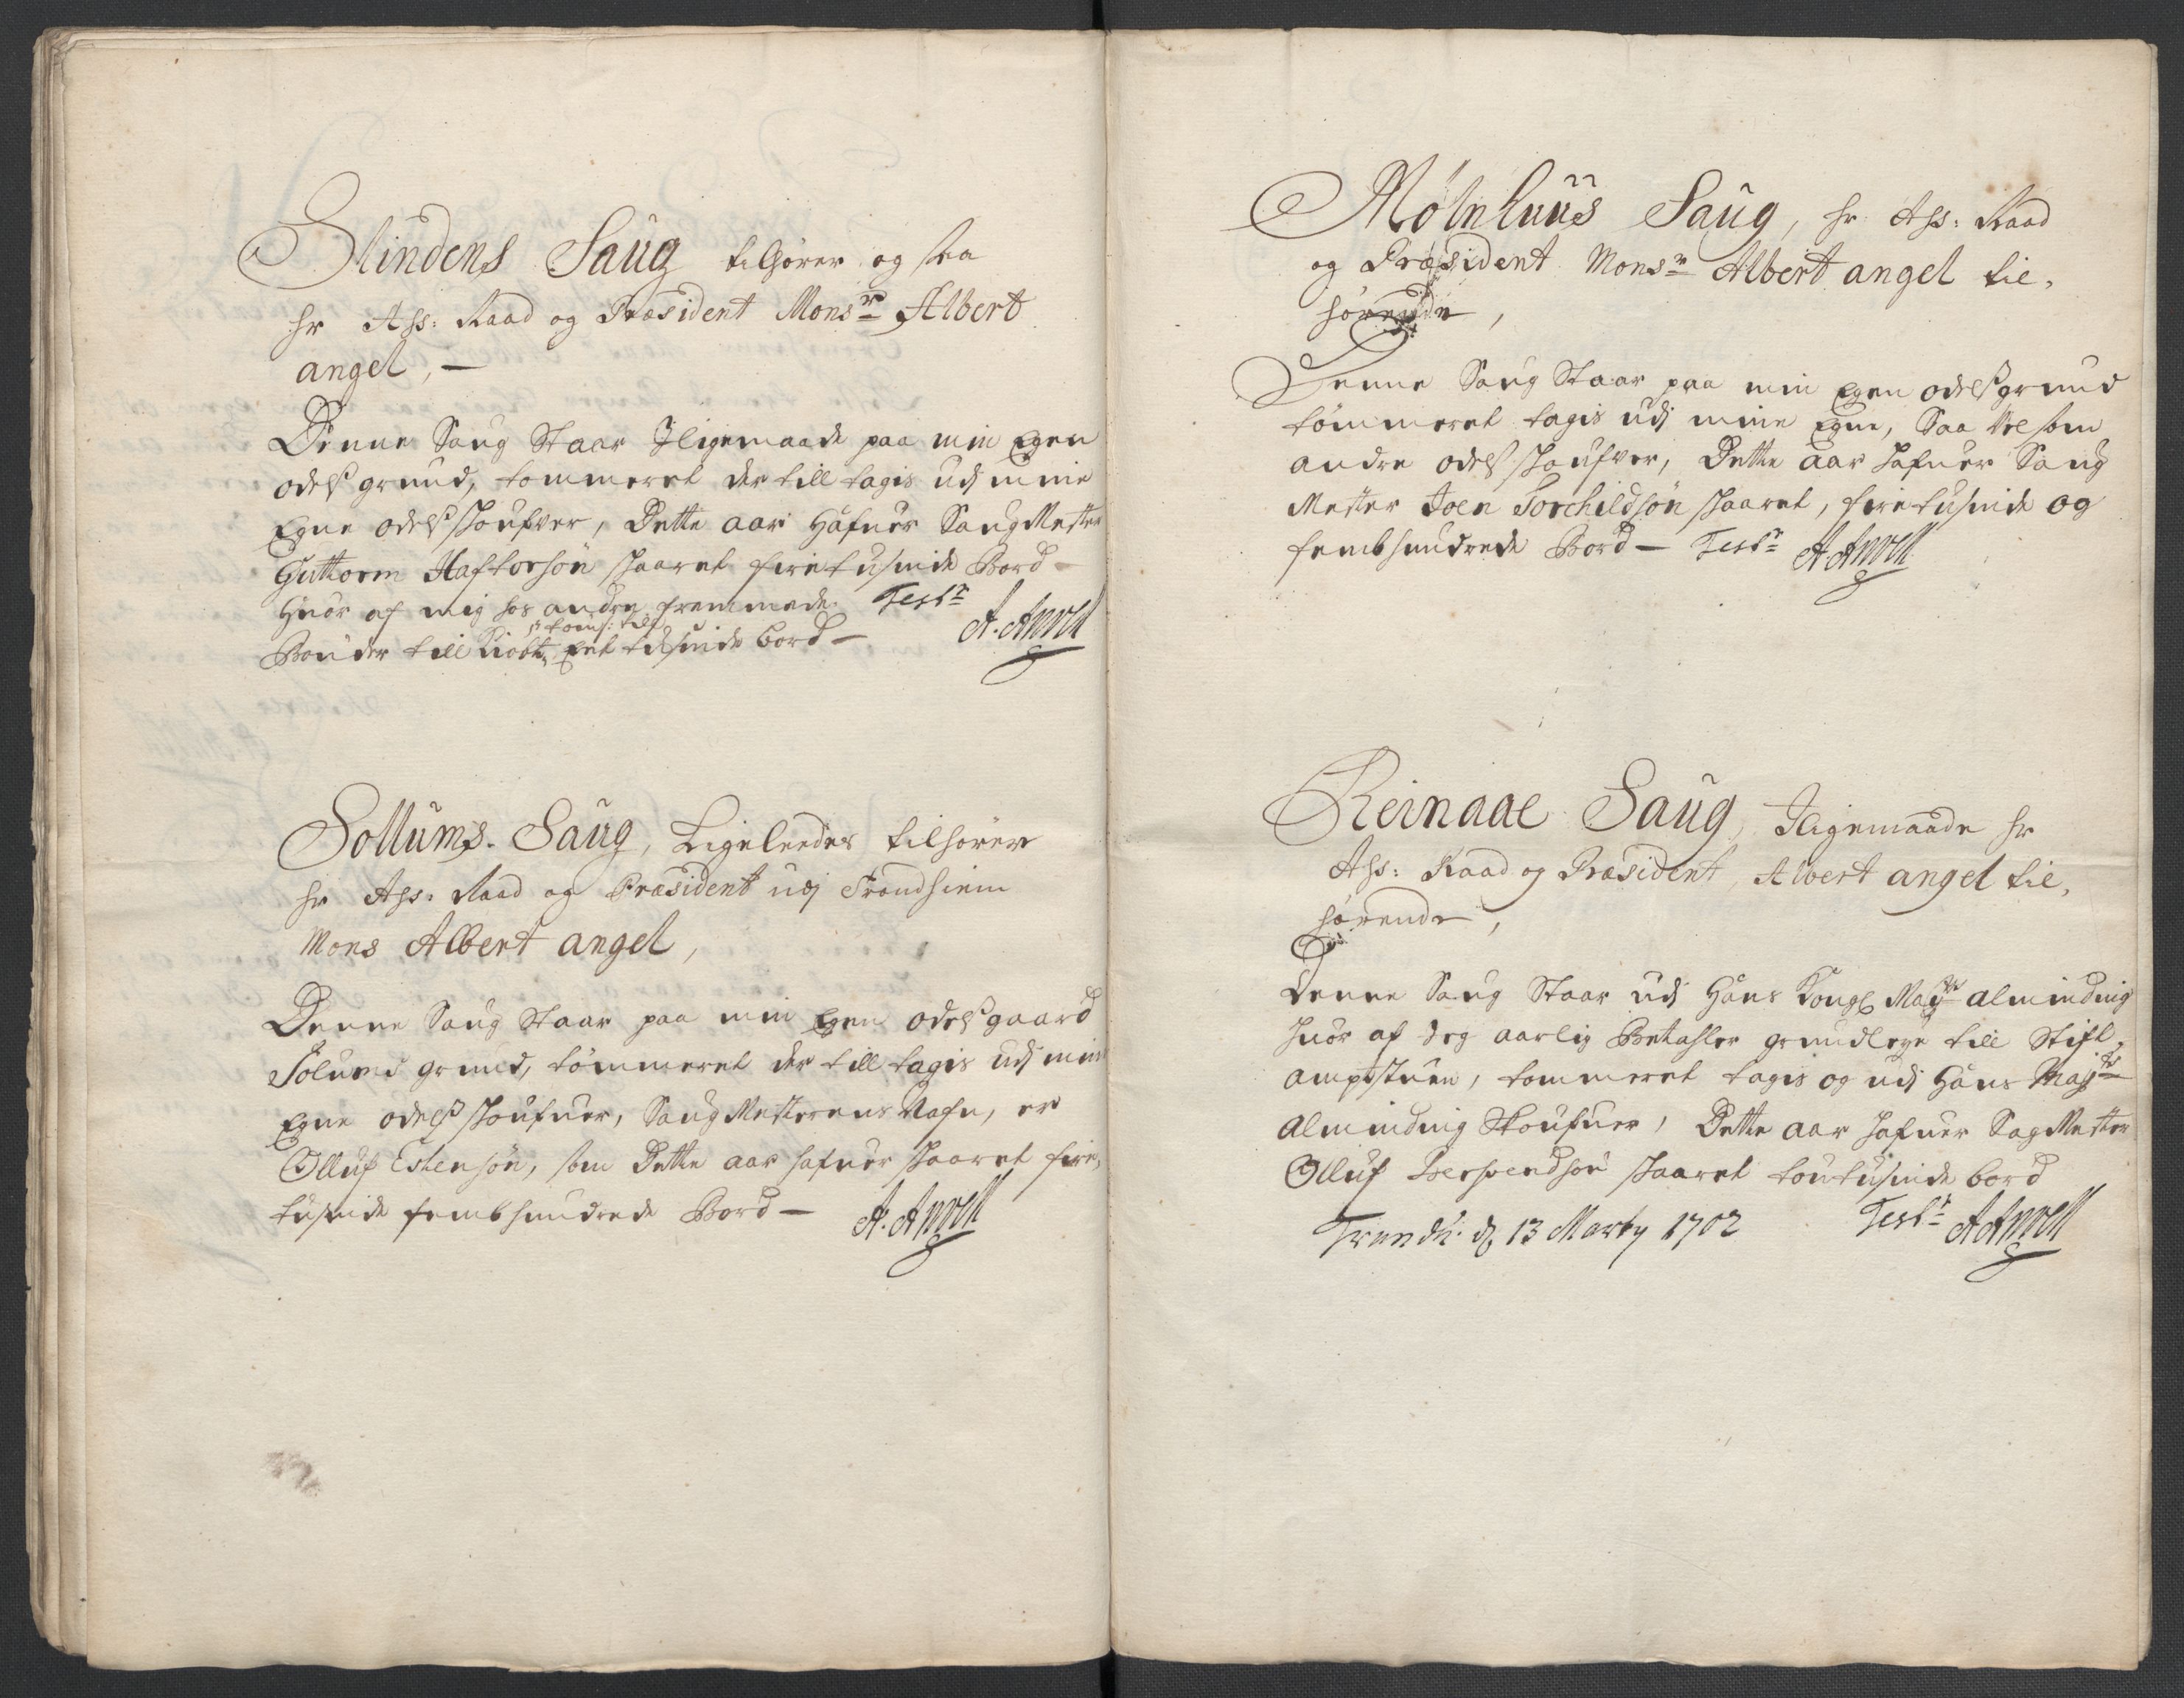 Slindens Saug tilhører og saa
hr Ass: Raad og Præsident Monsr Albert
angel, —
Denne Saug Staar Jligemaade paa min Egen
odels grund, tømmeret der till tagis udj mine
Egne odels skoufver, Dette aar Hafuer Saug Mester
Guttorm Haftorsøn skaaret firetusinde Bord —
Huor af mig hos andre fremmede Testr
Bønder till Kiøbt, Eet tusinde bord — A. Angell
Sollums. Saug, Ligeleedes tilhører
hr Ass: Raad og Præsident udj Trondhiem
Mons Albert angel,
Denne Saug Staar paa min Egen odels gaard
Solums grund, tømmeret der till tagis udj mine
Egne odels skoufuer, Saug Mesterens Nafn, er
Olluf Estensøn, som Dette aar hafuer skaaret fire,
tusinde fembhundrede Bord — A. Angell
Mølnhuus Saug, hr Ass: Raad
og Præsident Monsr Albert angel til,
hørende,
Denne Saug Staar paa min Egen odels grund
tømmeret tagis udj mine Egne, Saa vel som
andre odels skoufver, Dette aar hafuer Saug
Mester Joen Torchildsøn skaaret, firetusinde og
fembhundrede Bord — Testr A. Angell
Reinaae Saug, Jligemaade hr
Ass: Raad og Præsident, Albert angel til,
hørende,
Denne Saug Staar udj Hans Kongl Maytz alminding
huor af Jeg aarlig Betahler grundleye till Stift,
amptstuen, tømmeret tagis og udj Hans Maytz
Alminding Skoufuer, Dette aar hafuer Sag Mester
Olluf skaaret toutusinde bord
Trundh: d. 13 Marty 1702 Testr A Angell